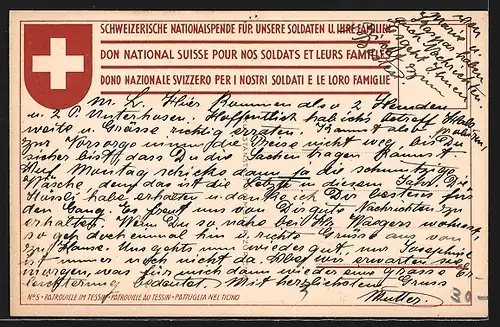 SCHWEIZERISCHE NATIONALSPENDE FÜR UNSERE SOLDATEN U. IHRE FAMILIEN
DON NATIONAL SUISSE POUR NOS SOLDATS ET LEURS FAMILLES
DONO NAZIONALE SVIZZERO PER I NOSTRI SOLDATI E LE LORO FAMIGLIE
M. L. Hier kommen also 2 Hemden
u. 2 P. Unterhosen. Hoffentlich hab ich's betreff Hals
weite u. Grösse richtig erraten. Kannst also probieren,
zur Vorsorge nimm die Preise nicht weg, bis Du
sicher bist, dass Du die Sachen tragen kannst.
Auf Montag schicke dann ja die schmutzige
Wäsche, denn das ist die Letzte in diesem Jahr. Die
habe erhalten u. danke ich Dir bestens für
den Gang. Es freut uns von Dir gute Nachrichten zu
erhalten. Wenn Du so nahe bei Hs. Waegers wohnst
so geh doch einmal hin u. richte Grüsse aus von
zu Hause. Uns gehts nun wieder gut, nur Josephine
ist immer noch nicht da. Aber wir erwarten sie
morgen, was für mich dann wieder eine grosse
Erleichterung bedeutet. Mit herzlichstem Gruss
Mutter.
30.-
No 5 • PATROUILLE IM TESSIN • PATROUILLE AU TESSIN • PATTUGLIA NEL TICINO